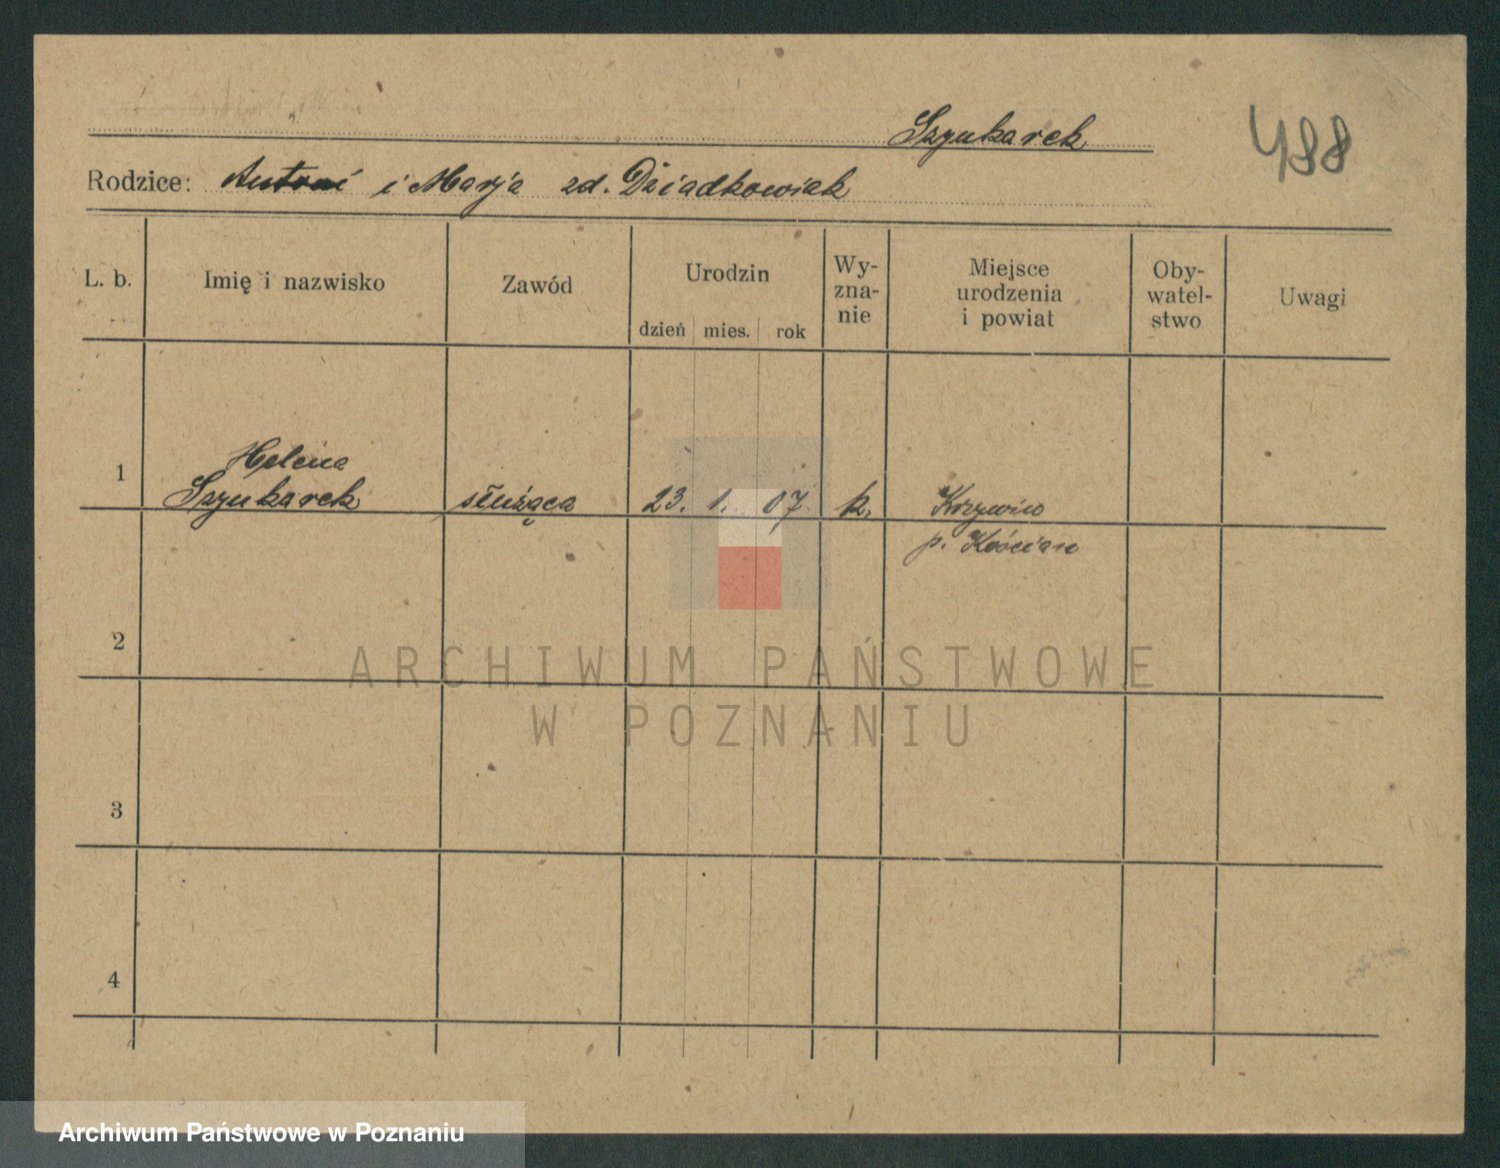 Szyukarek
488
Rodzice: Antoni i Marja zd. Dziadkowiak
L. b.
Imię i nazwisko
Zawód
Urodzin
dzień mies. rok
Wy-
zna-
nie
Miejsce
urodzenia
i powiat
Oby-
watel-
stwo
Uwagi
1
Helena
Szyukarek
służąca
23. 1. 07
k.
Krzywiń
p. Kościan
2
3
4
ARCHIWUM PAŃSTWOWE
W POZNANIU
Archiwum Państwowe w Poznaniu